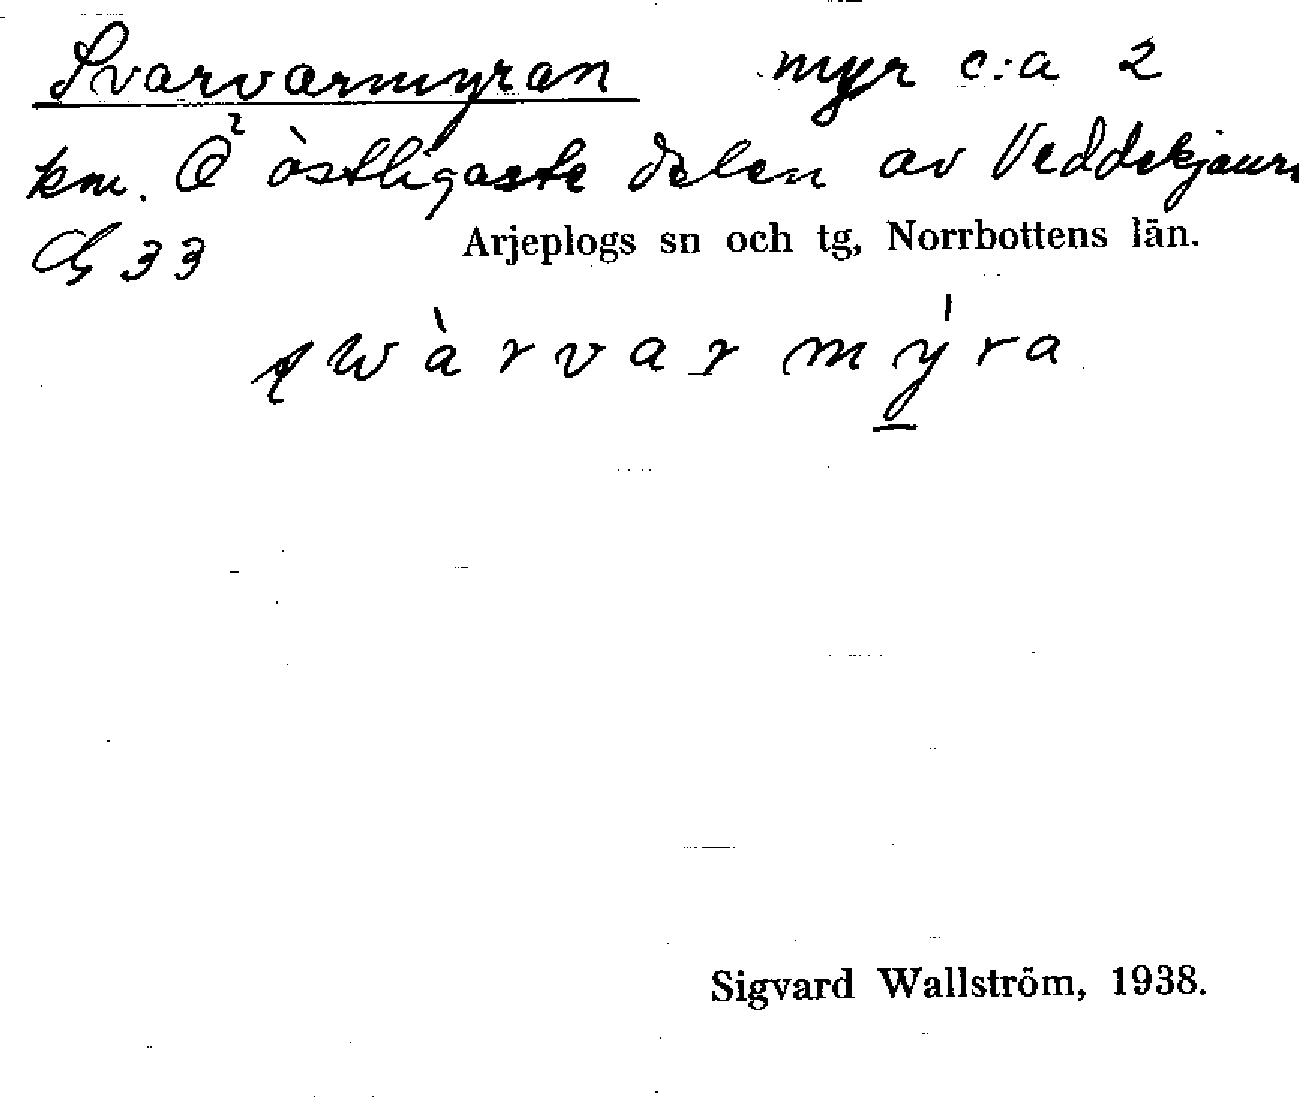 Svarvarmyran myr c:a 2
km. Ö östligaste delen av Veddekjaure
G 33
Arjeplogs sn och tg, Norrbottens län.
swàrvarmýra
Sigvard Wallström, 1938.